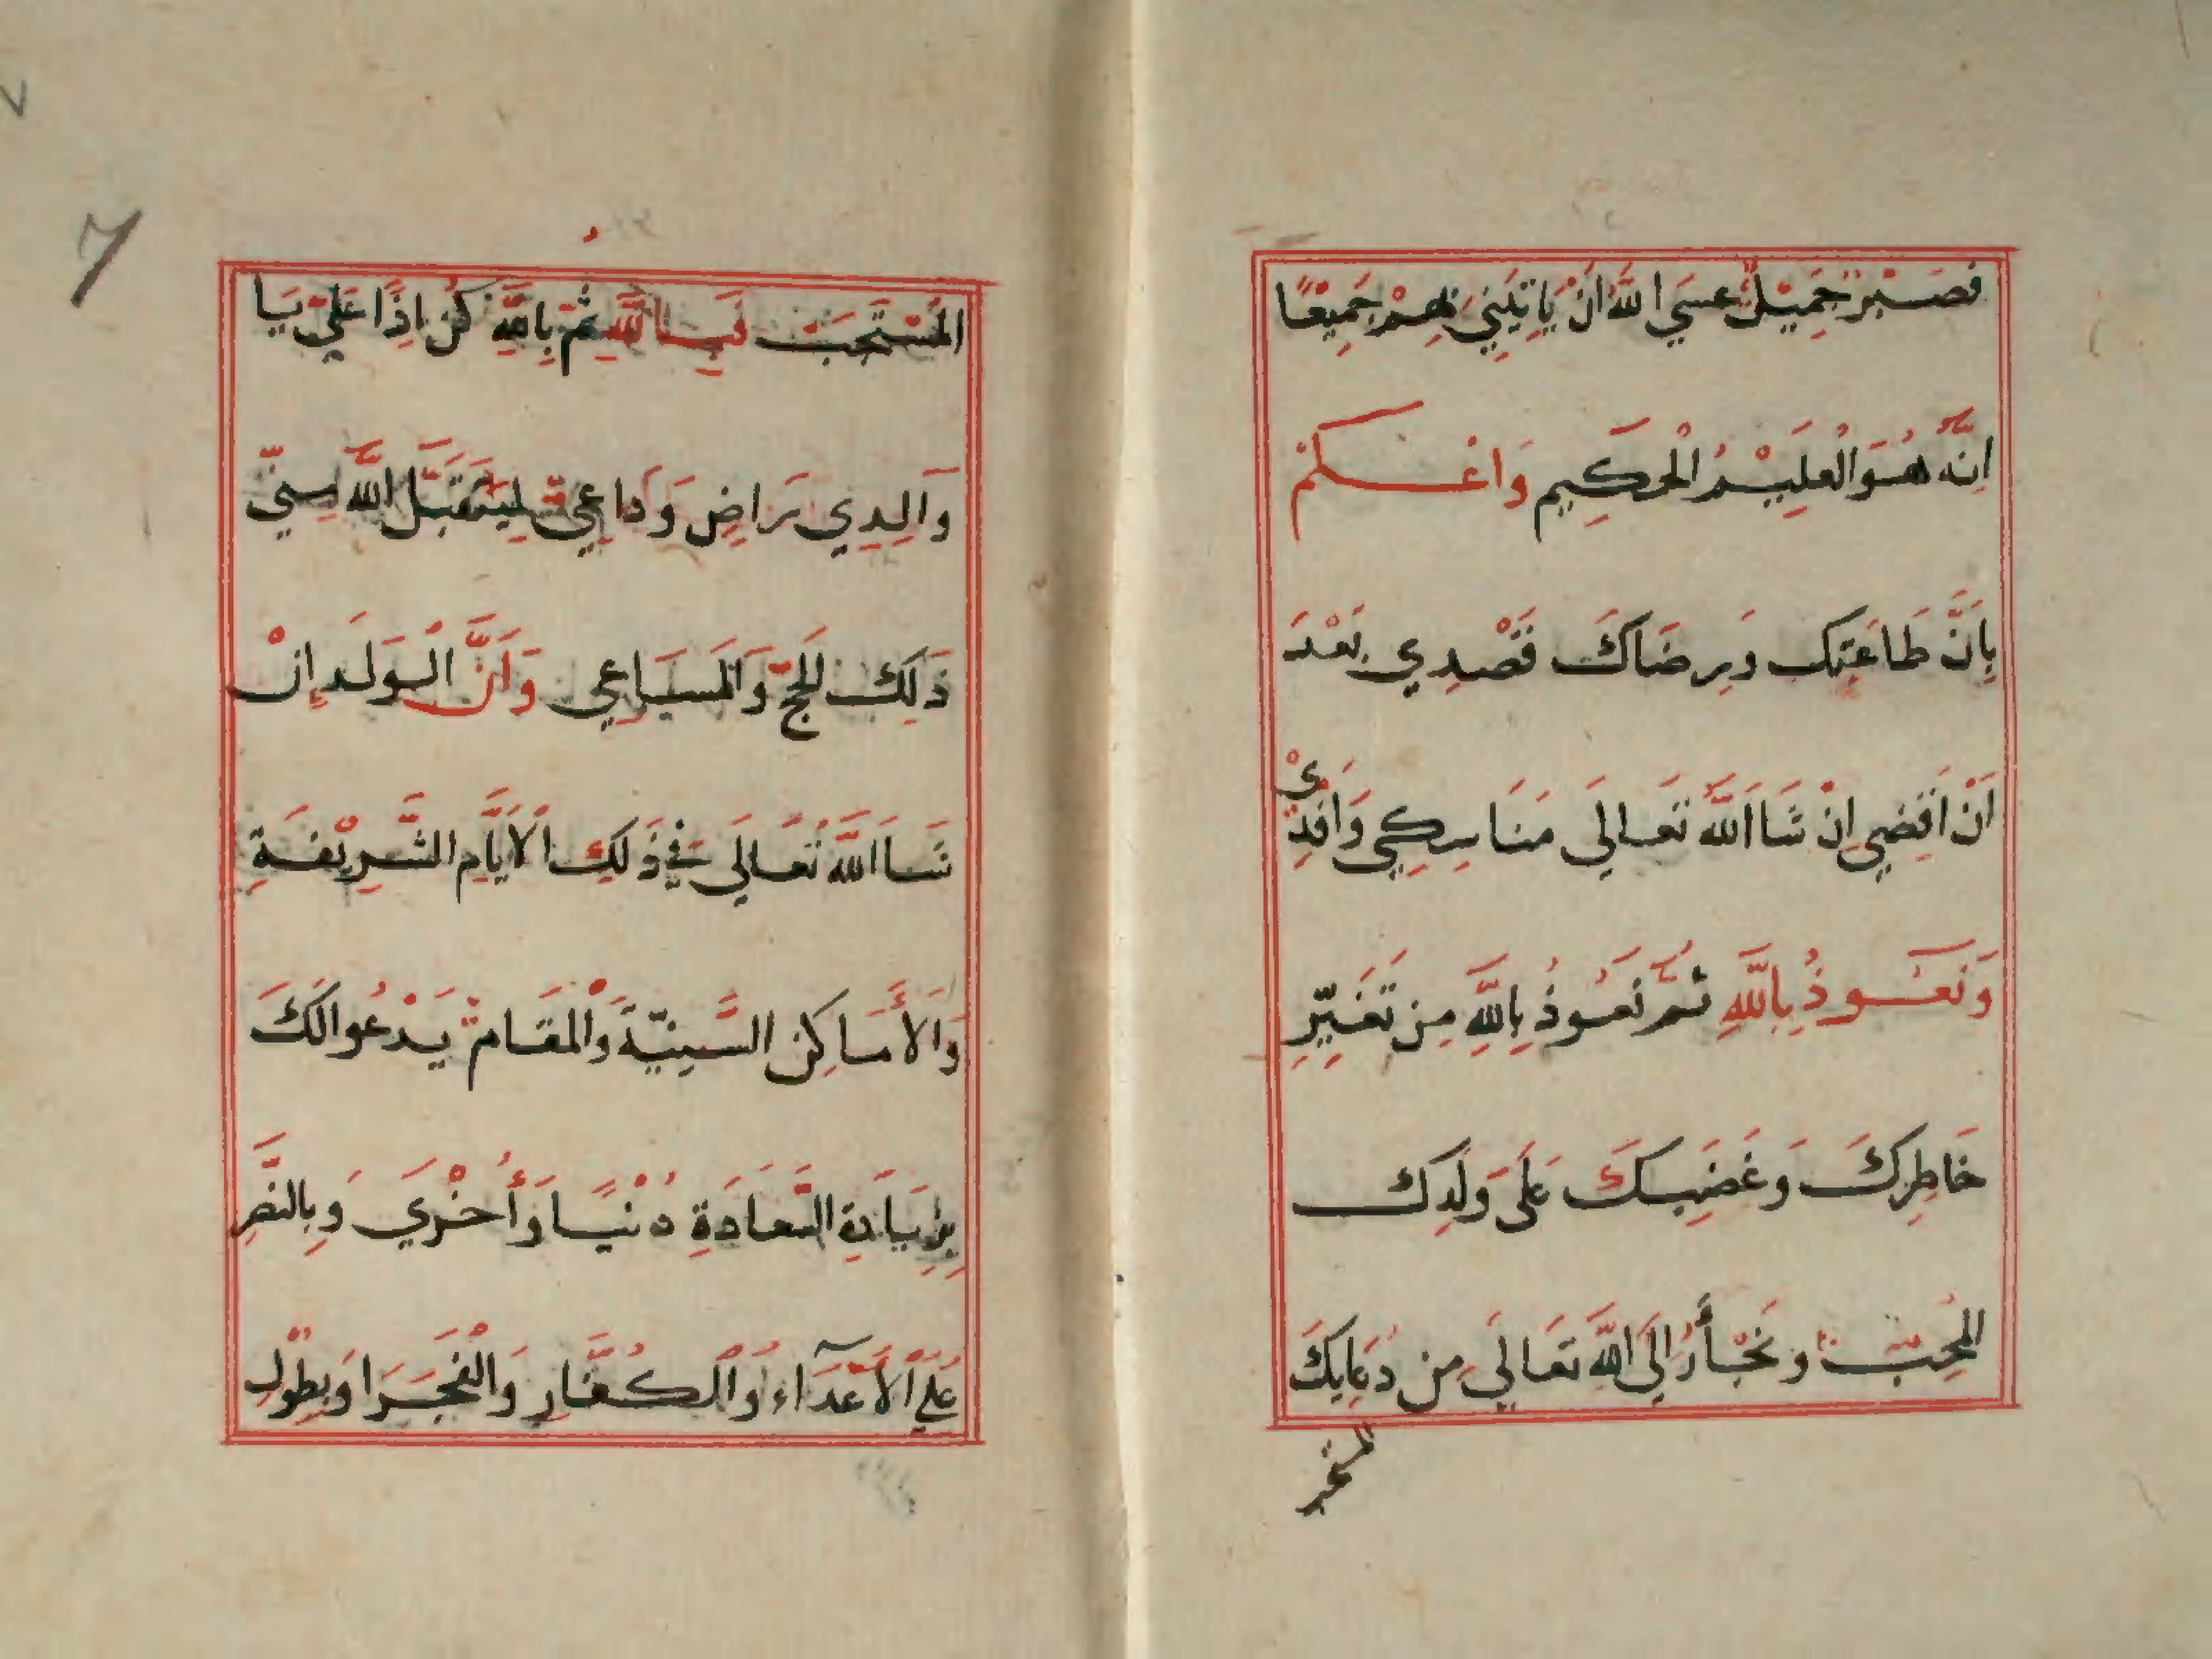 فَصَبْرٌ جَمِيْلٌ عَسَي اللّٰهُ اَنْ يَاتِيَنِي بِهِمْ جَمِيْعًا
اِنَّهُ هُوَ الْعَلِيْمُ الْحَكِيم وَاعْلَمْ
بِاَنَّ طَاعَتِك وَرِضَاكَ قَصْدِي بَعْدَ
اَنْ اَقْضِي اِنْ شَا اَللّٰه تَعَالَي مَنَاسِكِي وَافْدِيْ
وَنَعُوذُ بِاللّٰهِ ثُمَّ نَعُوذُ بِاللّٰهِ مِن تَغَيِّرِ
خَاطِرِكَ وَغَضَبِكَ عَلَى وَلَدِكَ
المُحِبّ وَنَجْأَرُ اِلَى اللّٰهِ تَعَالَي مِن دُعَايِكَ
المستجب
7
المُسْتَجَبَ فَبِاللّٰهِ ثُمَّ بِاللّٰهِ كُن اِذًا عَلَيّ يَا
وَالِدِي رَاضٍ وَدَاعِي لِيَتَقَبَّل اللّٰه مِنّي
ذَلِكَ الحَجّ وَالمَسَاعِي وَاَنَّ الْوَلَد اِنْ
شَا اَللّٰهُ تَعَالَي فِي ذَلِكَ الْاَيَّامِ الشَّرِيْفَةِ
وَالأَمَاكِن السَّنِيّةَ وَالْمَقَام يَدْعُوا لَكَ
بِزِيَادَةِ السَّعَادَةِ دُنْيًا وَأُخْرَي وَبِالنَّصْرِ
عَلَي الْاَعْدَآء وَالْكُفَّارِ وَالْفَجَرَا وَبِطُوْلِ